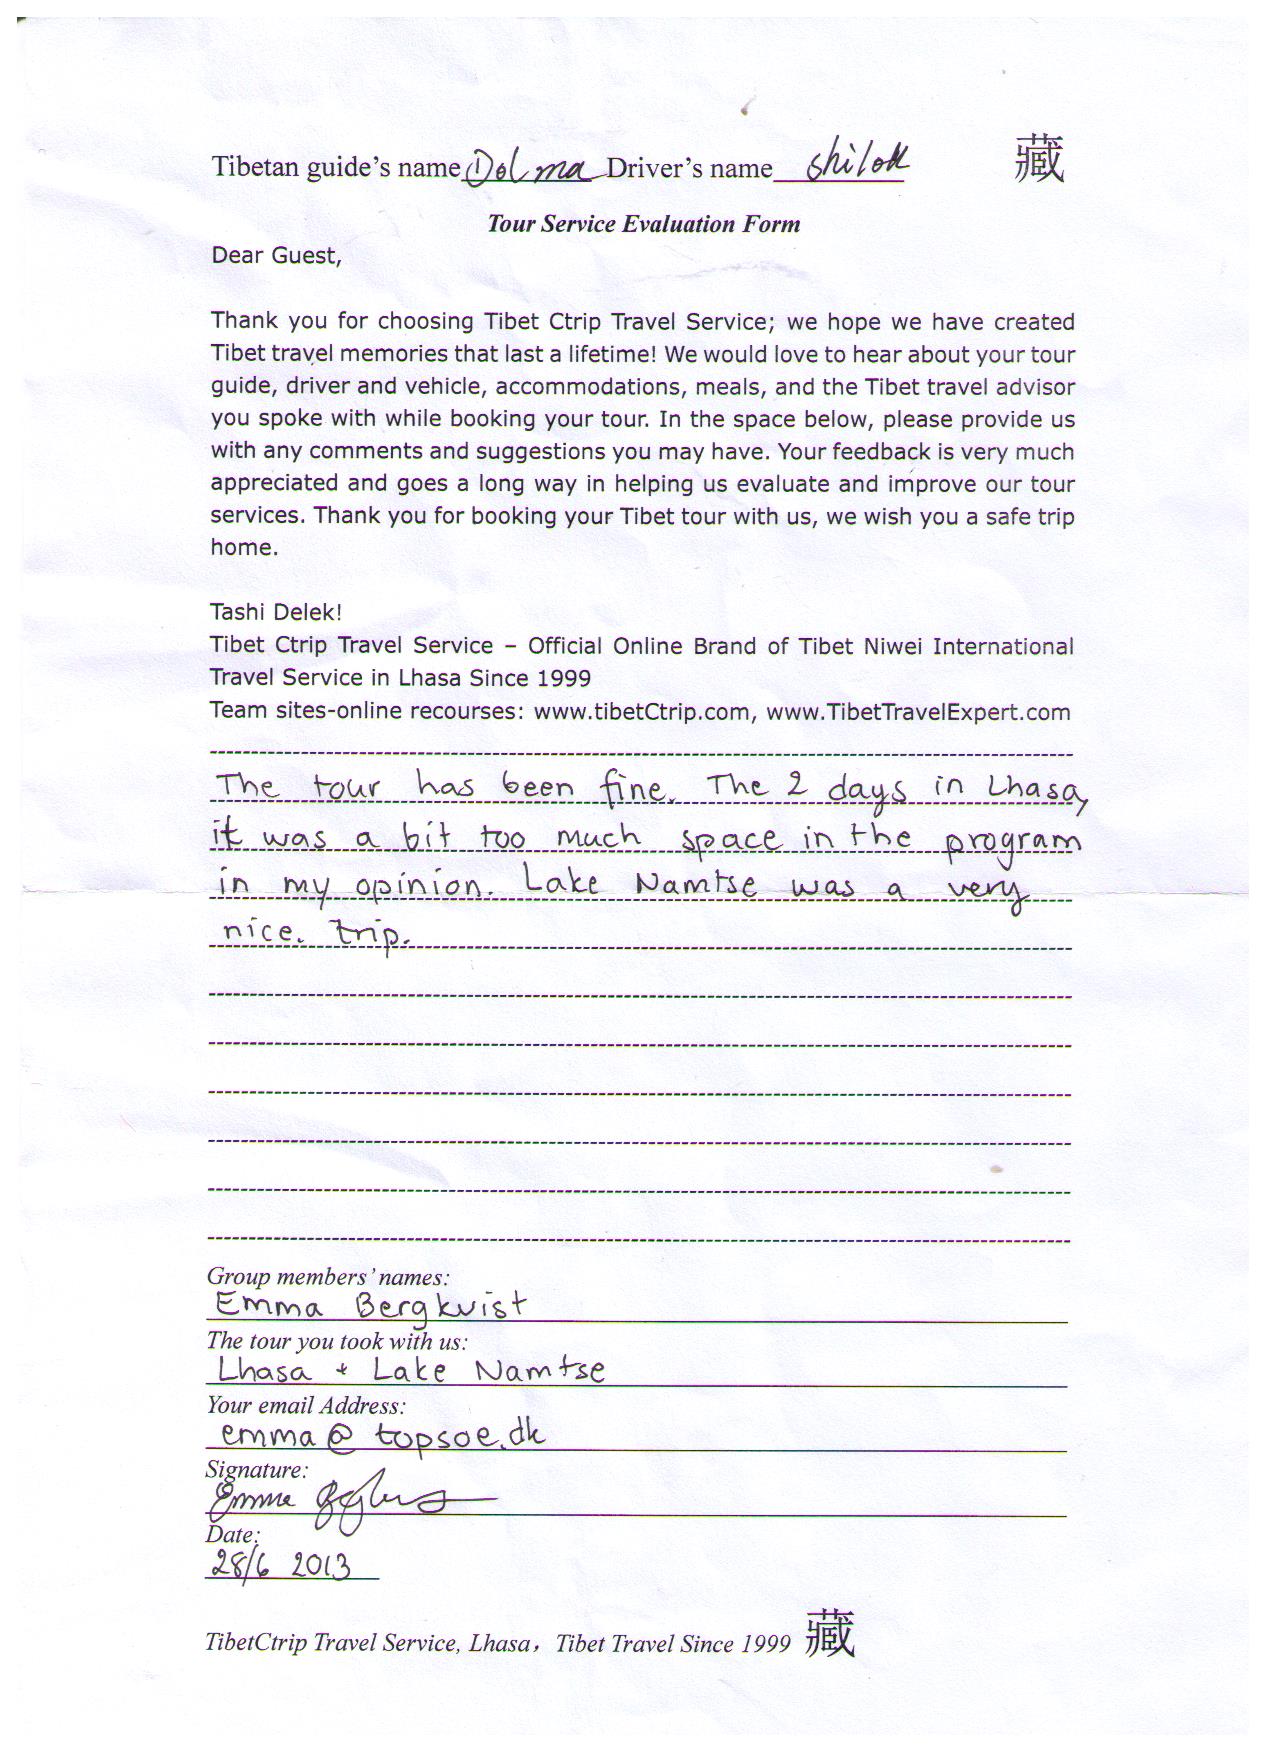 Tibetan guide's name Dolma Driver's name shilok 藏
Tour Service Evaluation Form
Dear Guest,
Thank you for choosing Tibet Ctrip Travel Service; we hope we have created
Tibet travel memories that last a lifetime! We would love to hear about your tour
guide, driver and vehicle, accommodations, meals, and the Tibet travel advisor
you spoke with while booking your tour. In the space below, please provide us
with any comments and suggestions you may have. Your feedback is very much
appreciated and goes a long way in helping us evaluate and improve our tour
services. Thank you for booking your Tibet tour with us, we wish you a safe trip
home.
Tashi Delek!
Tibet Ctrip Travel Service – Official Online Brand of Tibet Niwei International
Travel Service in Lhasa Since 1999
Team sites-online recourses: www.tibetCtrip.com, www.TibetTravelExpert.com
The tour has been fine. The 2 days in Lhasa,
it was a bit too much space in the program
in my opinion. Lake Namtse was a very
nice. trip.
Group members' names:
Emma Bergkvist
The tour you took with us:
Lhasa + Lake Namtse
Your email Address:
emma@topsoe.dk
Signature:
Emma
Date:
28/6 2013
TibetCtrip Travel Service, Lhasa, Tibet Travel Since 1999 藏